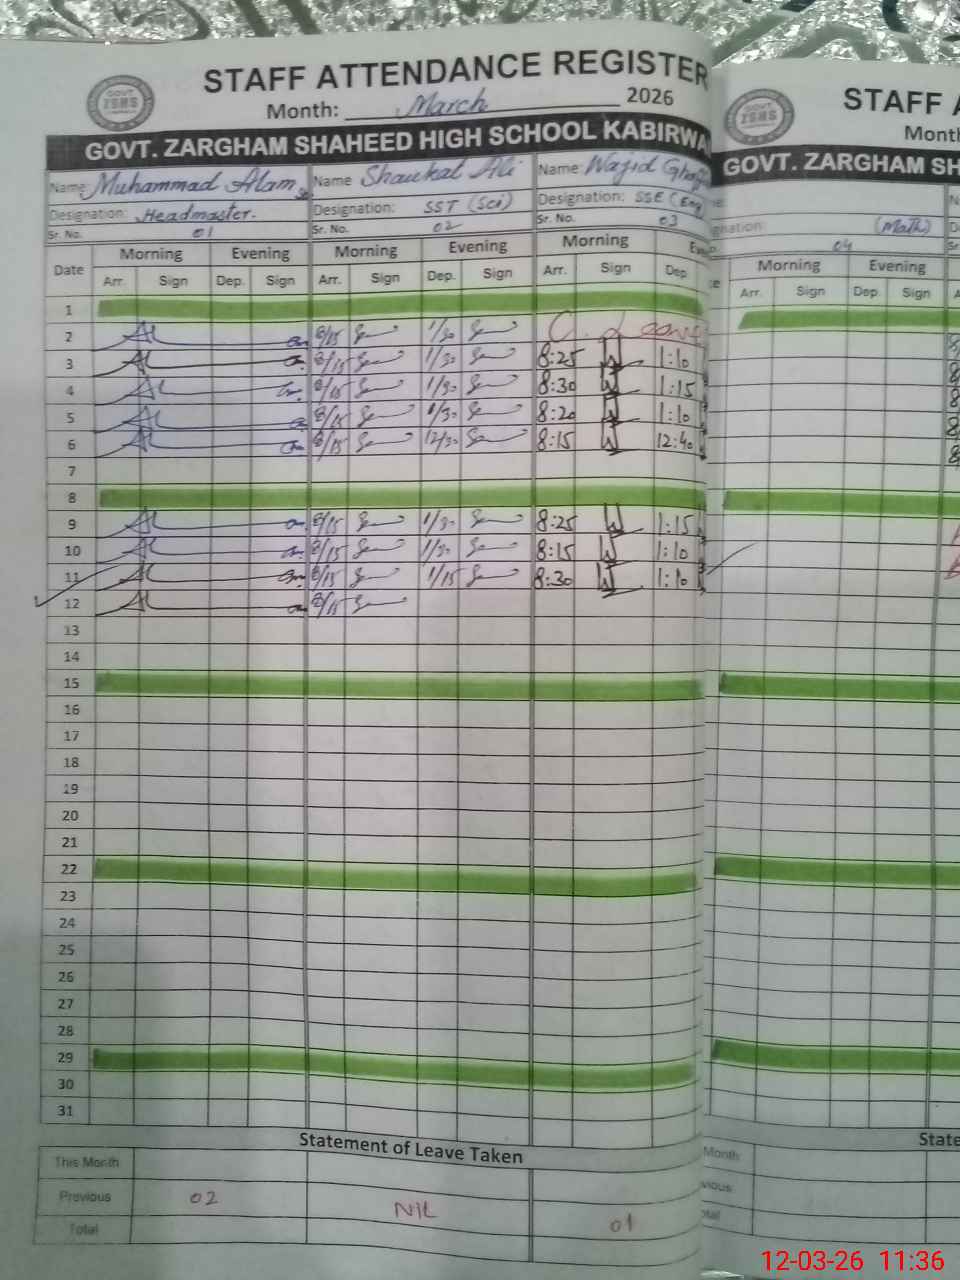 STAFF ATTENDANCE REGISTER
Month: March 2026
GOVT. ZARGHAM SHAHEED HIGH SCHOOL KABIRWA
Name: Muhammad Alam Name Shaukat Ali Name: Wajid
Designation: Headmaster. Designation: SST (Sci) Designation: SSE (Eng
Sr. No. 01 Sr. No. 02 Sr. No. 03
Date Morning Evening Morning Evening Morning
Arr. Sign Dep. Sign Arr. Sign Dep. Sign Arr. Sign Dep
1
2 8/15 1/30 C. Leave
3 8/15 1/30 8:25 1:10
4 8/15 1/30 8:30 1:15
5 8/15 1/30 8:20 1:10
6 8/15 12/30 8:15 12:40
7
8
9 8/15 1/30 8:25 1:15
10 8/15 1/30 8:15 1:10
11 8/15 1/15 8:30 1:10
12 8/15
13
14
15
16
17
18
19
20
21
22
23
24
25
26
27
28
29
30
31
Statement of Leave Taken
This Month
Previous 02 NIL 01
Total
STAFF A
Month
GOVT. ZARGHAM SH
(Math)
04
Morning Evening
Arr. Sign Dep. Sign
State
Month
12-03-26 11:36